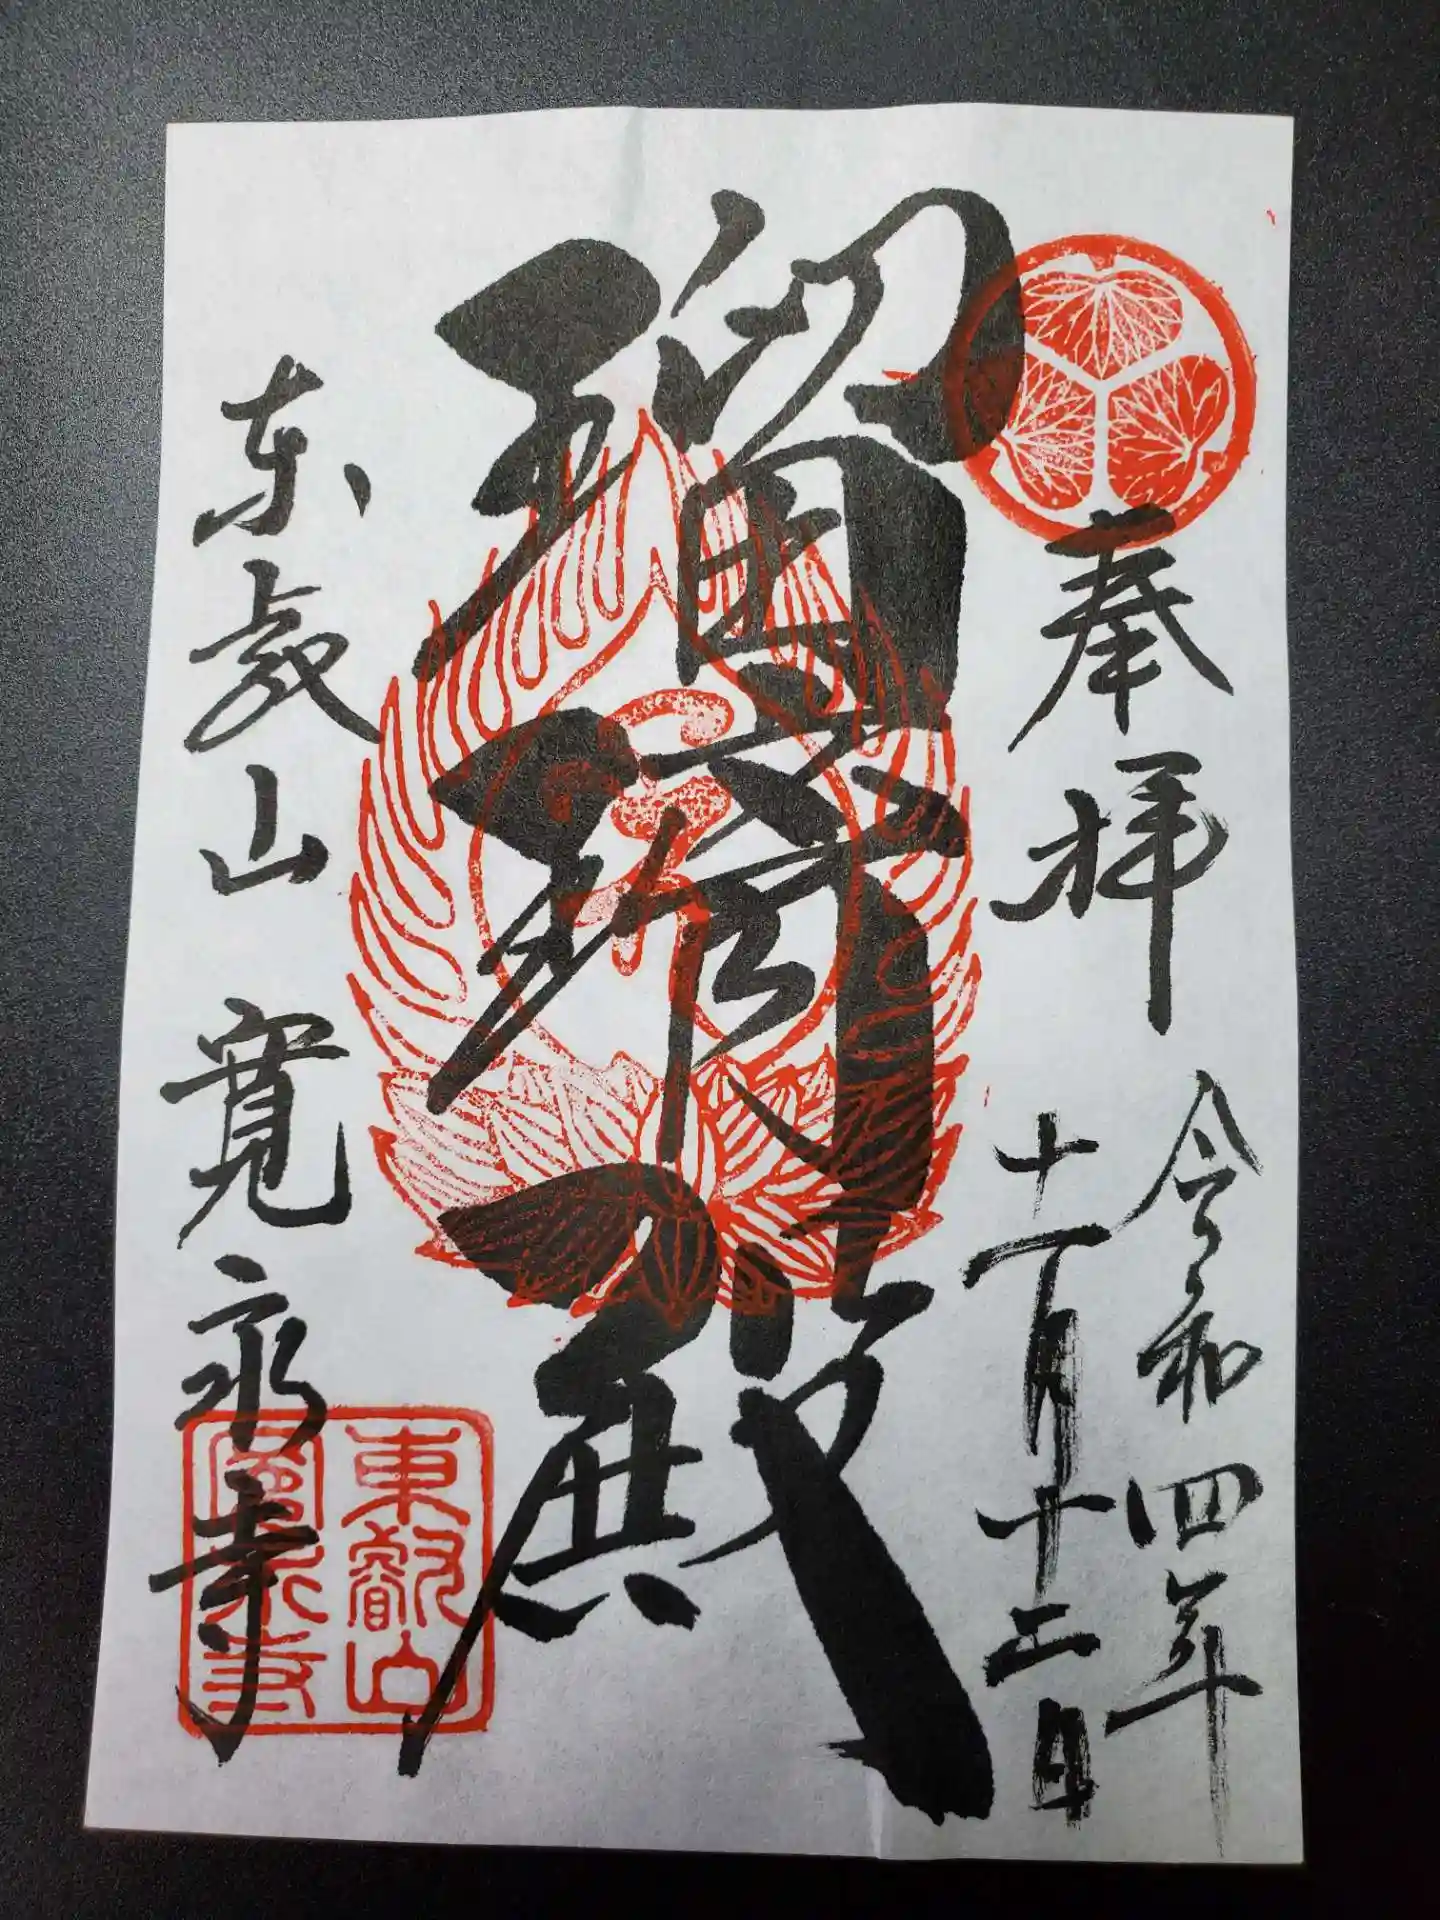 奉拝
令和四年
十一月十二日
瑠璃殿
東叡山 寛永寺
東叡山
寛永寺